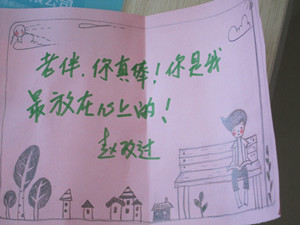 老伴，你真棒！你是我
最放在心上的！
赵改过